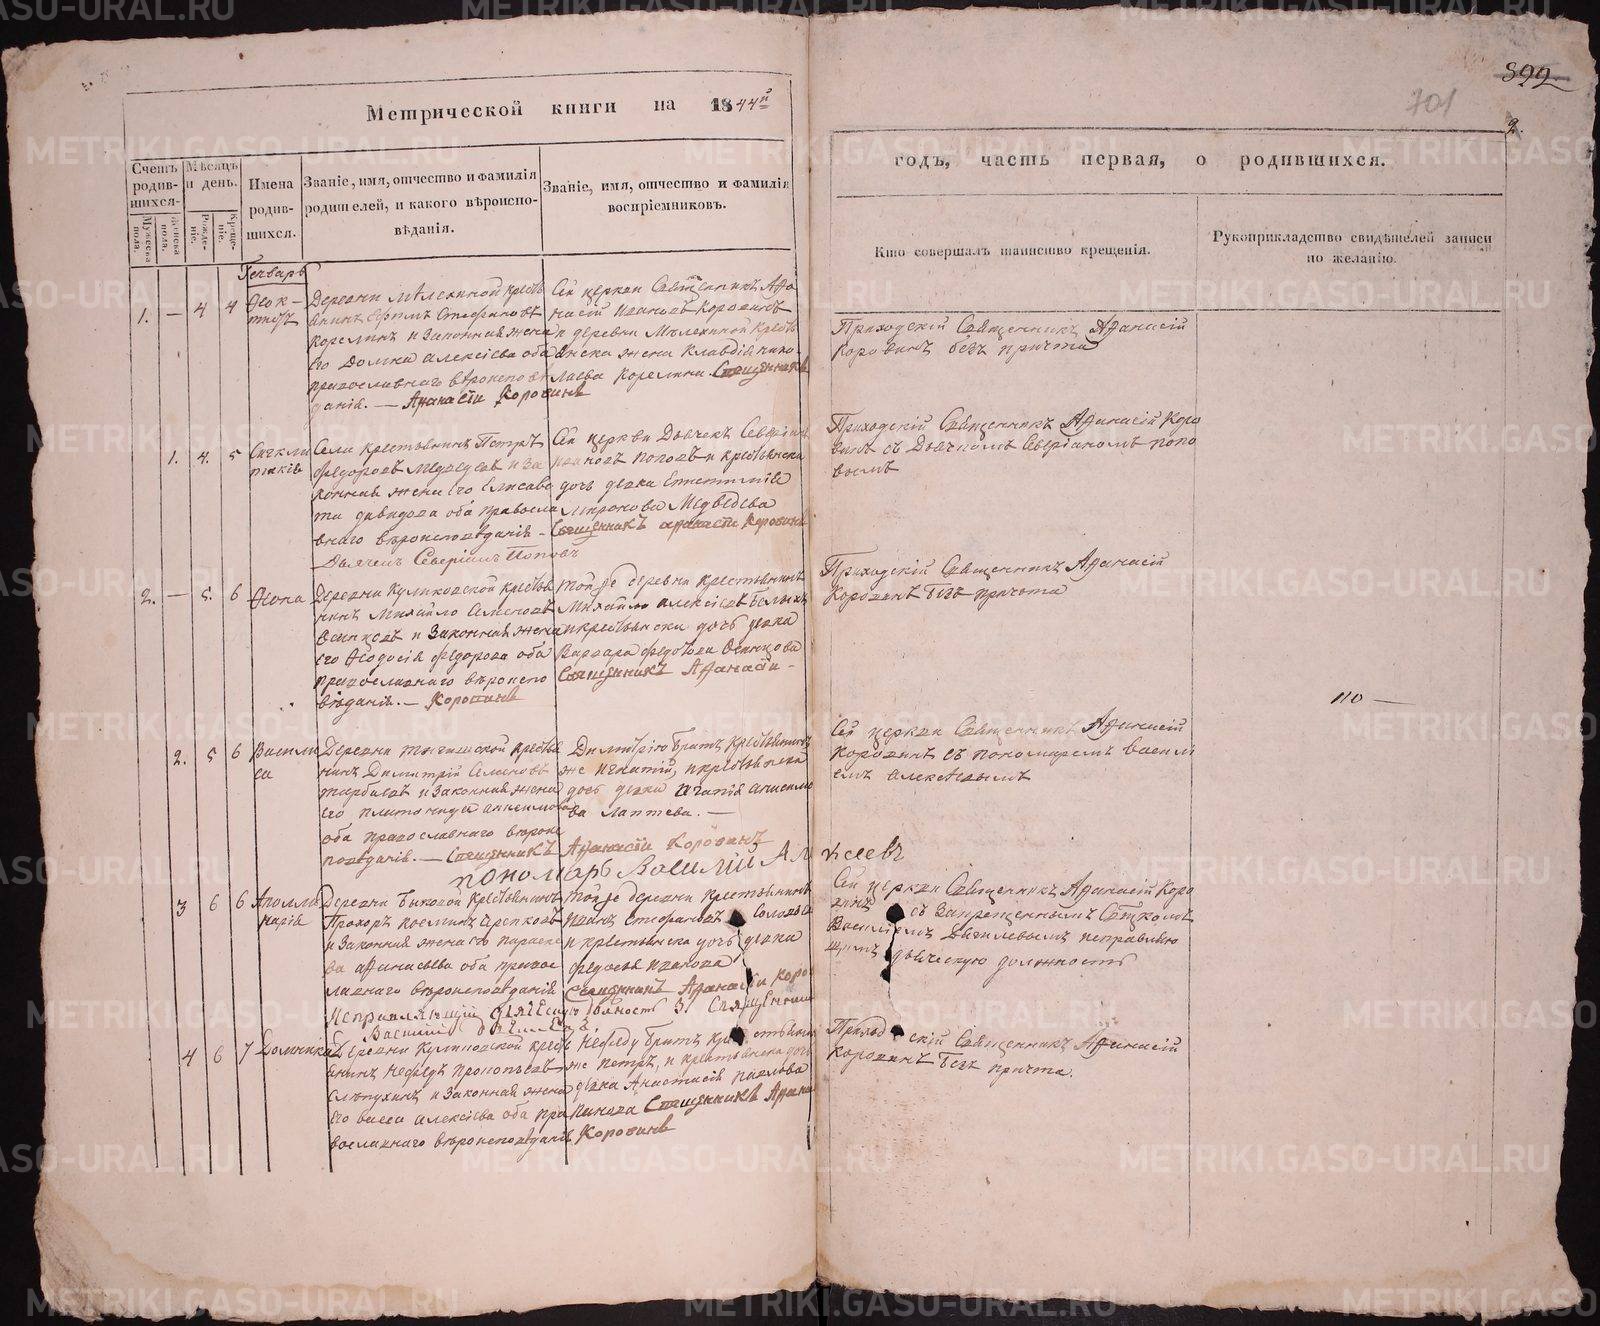 899
701
2.
Метрической книги на 1844й
годъ, часть первая, о родившихся.
Счетъ родив-шихся.
Мужеска пола.
Женска пола.
Мѣсяцъ и день.
Рожде-нiе.
Креще-нiе.
Имена родив-шихся.
Званiе, имя, отчество и фамилiя родителей, и какого вѣроиспо-вѣданiя.
Званiе, имя, отчество и фамилiя воспрiемниковъ.
Кто совершалъ таинство крещенiя.
Рукоприкладство свидѣтелей записи по желанiю.
Генварь
1. — 4 4
Ѳеок-
тистъ
Деревни Мѣлехиной кресть
янинъ Ефимъ Стефановъ
Корелинъ и законная жена
его Домна Алексiева оба
православнаго вѣроисповѣ
данiя. — Афанасiй Коровинъ
Сей церкви Священникъ Афа
насiй Ивановъ Коровинъ
и деревни Мѣлехиной кресть
янска жена Клавдiя Нико
лаева Корелина. Священникъ
Приходскiй Священникъ Афанасiй
Коровинъ безъ причта
1. 4. 5
Сигкли
тикiя
Села крестьянинъ Петръ
Федоровъ Медведевъ и за
конная жена его Елисаве
та Давидова оба правосла
внаго вѣроисповѣданiя —
Дьячекъ Северiанъ Поповъ
Сей церкви Дьячекъ Северiанъ
Ивановъ Поповъ и крестьянска
дочь девка
Миронова Медведева
Священникъ Афанасiй Коровинъ
Приходскiй Священникъ Афанасiй Коро
винъ съ Дьячкомъ Сѣверiаномъ Попо
вымъ
2. — 5. 6
Ѳеона
Деревни Куликовской кресть
нинъ Михайло Семеновъ
Осинцовъ и законная жена
его Ѳеодосiя Федорова оба
православнаго вѣроиспо
вѣданiя. — Коровинъ
Той же деревни крестьянинъ
Михайло Алексiевъ Белыхъ
и крестьянска дочь девка
Варвара Федотова Осинцова
Священникъ Афанасiй —
Приходскiй Священникъ Афанасiй
Коровинъ безъ причта
по —
2. 5 6
Васили
са
Деревни кресть
нинъ Димитрiй Семеновъ
и законная жена
его Анисимова
оба православнаго вѣроис
повѣданiя. — Священникъ
Димитрiю братъ крестьянинъ
же Игнатiй, и крестьянска
дочь девка Агапiя Анисимо
ва Лаптева. —
Афанасiй Коровинъ
пономарь Василий Алѣксеевъ
Сей церкви Священникъ Афанасiй
Коровинъ съ пономаремъ Васили
емъ Алексѣевымъ
3 6 6
Аполли
нарiя
Деревни Быковой крестьянинъ
Прохоръ
и законная жена его Параске
ва Афанасьева оба правос
лавнаго вѣроисповѣданiя
Исправляющiй дьяческую
Василий
Той же деревни крестьянинъ
Иванъ Стефановъ
и крестьянска дочь девка
Федосья Иванова
Священникъ Афанасiй Коро
Сей церкви Священникъ Афанасiй Коро
винъ съ запрещеннымъ Свщкомъ
Василiемъ исправляю
щимъ дьяческую должность
4 6 7
Домника
Деревни Куликовской кресть
янинъ Нефедъ Прокопьевъ
Слѣпухинъ и законная жена
его Васса Алексiева оба пра
вославнаго вѣроисповѣданiя
Нефеду братъ крестьянинъ
же Петръ, и крестьянска дочь
девка Анастасiя Павлова
Панова Священникъ Афана
Коровинъ
Приходскiй Священникъ Афанасiй
Коровинъ безъ причта.